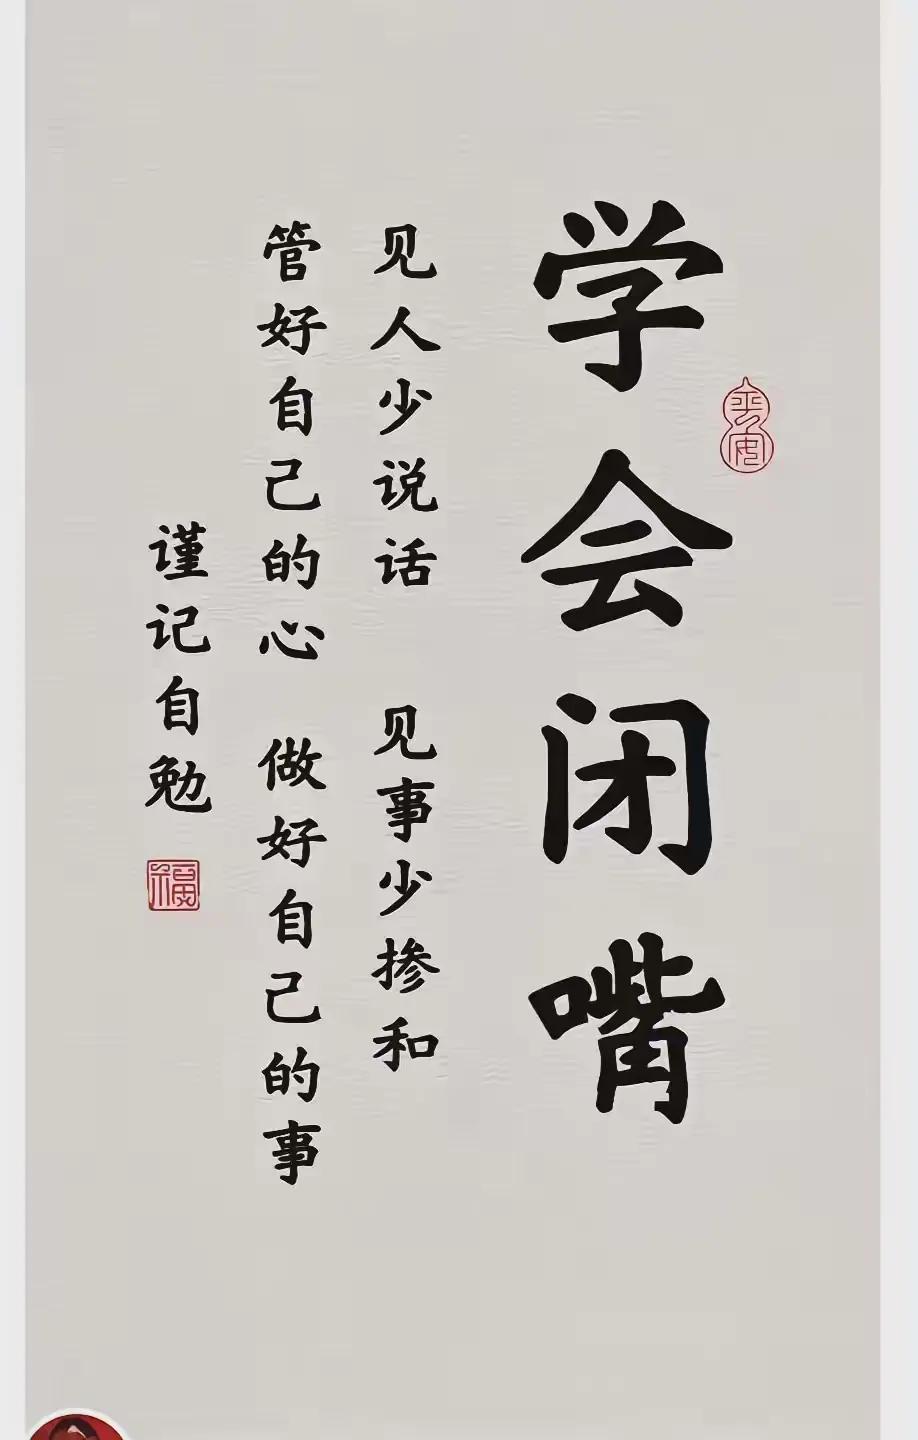 学会闭嘴
平安
见人少说话 见事少掺和
管好自己的心 做好自己的事
谨记自勉
福